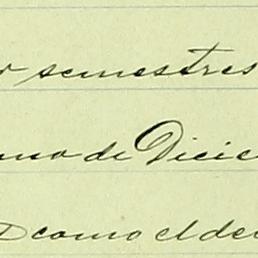 r semestres
uno de Dicie
como el de